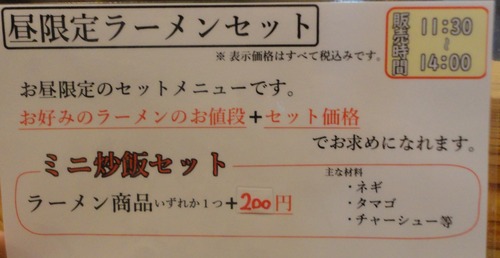 昼限定ラーメンセット
※ 表示価格はすべて税込みです。
販売時間
11:30
~
14:00
お昼限定のセットメニューです。
お好みのラーメンのお値段+セット価格
でお求めになれます。
ミニ炒飯セット
ラーメン商品いずれか1つ+200円
主な材料
・ネギ
・タマゴ
・チャーシュー等